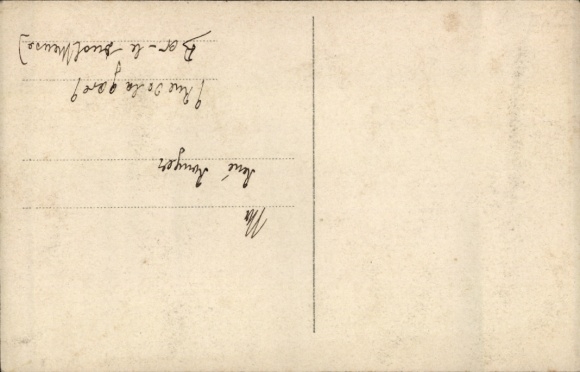 Mr
René Rouyer
9 Rue de la gare 9
Bar-le duc (Meuse)